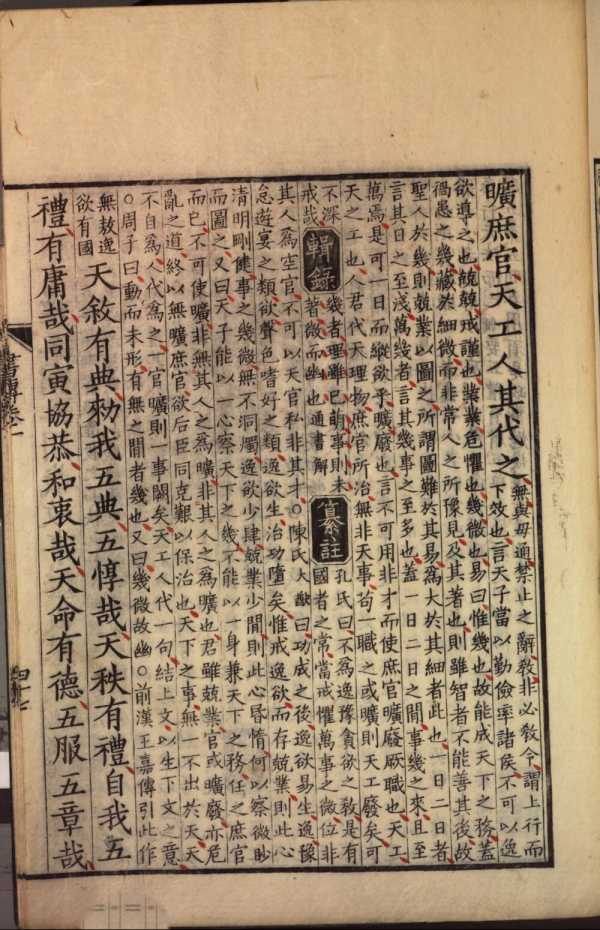 曠庶官天工人其代之
無與毋通禁止之辭敎非必敎令謂上行而
下效也言天子當以勤儉率諸侯不可以逸
欲導之也兢兢戒謹也業業危懼也幾微也易曰惟幾也故能成天下之務蓋
禍患之幾藏於細微而非常人之所豫見及其著也則雖智者不能善其後故
聖人於幾則兢業以圖之所謂圖難於其易爲大於其細者此也一日二日者
言其日之至淺萬幾者言其幾事之至多也蓋一日二日之間事幾之來且至
萬焉是可一日而縱欲乎曠廢也言不可用非才而使庶官曠廢厥職也天工
天之工也人君代天理物庶官所治無非天事苟一職之或曠則天工廢矣可
不深
戒哉
輯錄
幾者理雖已萌事則未
著微而幽也通書解
纂註
孔氏曰不爲逸豫貪欲之敎是有
國者之常當戒懼萬事之微位非
其人爲空官不可以天官私非其才○陳氏大猷曰功成之後逸欲易生逸豫
怠遊宴之類欲聲色嗜好之類逸欲生治功隳矣惟戒逸欲而存兢業則此心
清明剛健事之幾微無不洞燭逸欲少肆兢業少閒則此心昏惰何以察微眇
而圖之又曰天子能以一心察天下之幾不能以一身兼天下之務任之庶官
而已不可使曠非無其人之爲曠非其人之爲曠也君雖兢業官或曠廢亦危
亂之道終以無曠庶官欲后臣同克艱以保治也天下之事無一不出於天天
不自爲人代爲之一官曠則一事闕矣天工人代一句結上文以生下文之意
○周子曰動而未形有無之間者幾也又曰幾微故幽○前漢王嘉傳引此作
無敖逸
欲有國
天敘有典勑我五典五惇哉天秩有禮自我五
禮有庸哉同寅協恭和衷哉天命有德五服五章哉
書傳卷一
四十七